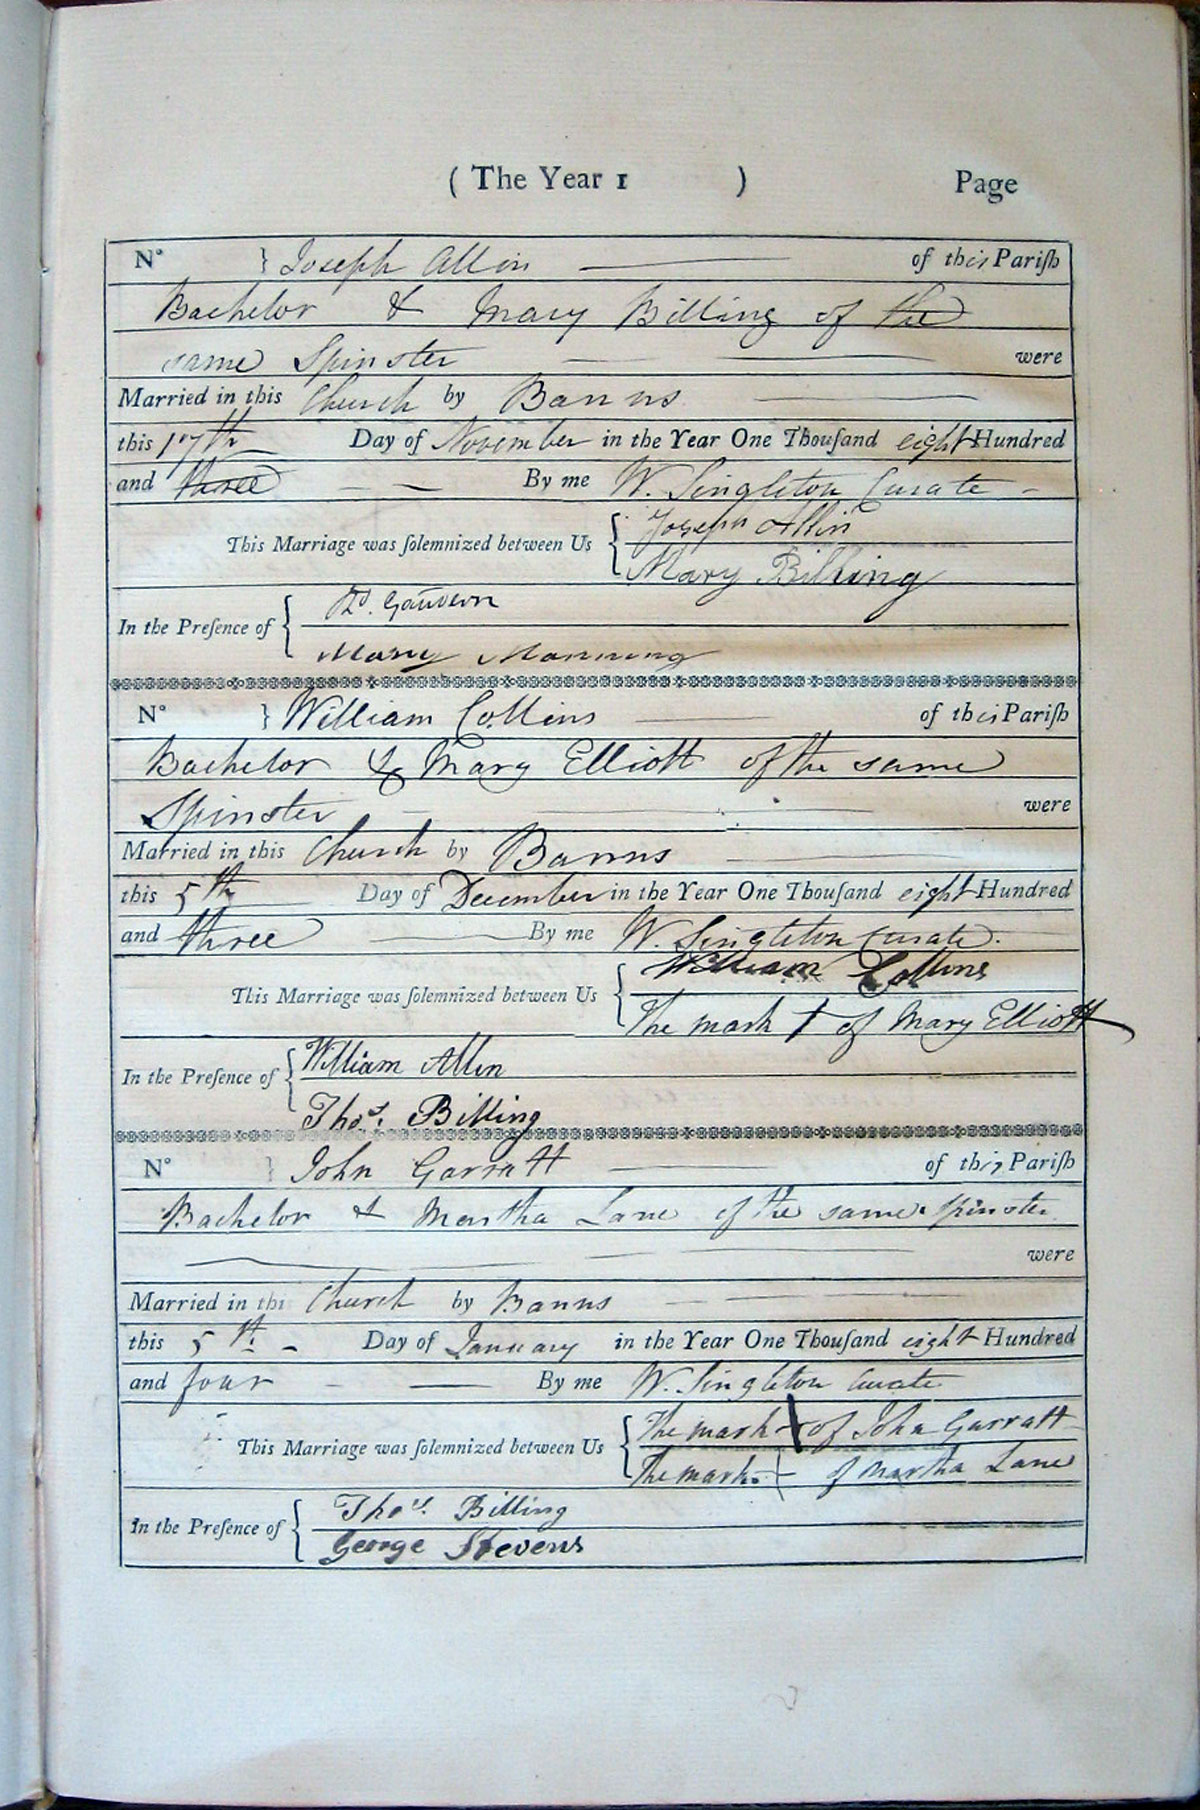 ( The Year 1 ) Page
N° } Joseph Allin of this Pariſh
Bachelor & Mary Billing of the
same Spinster were
Married in this Church by Banns
this 17th Day of November in the Year One Thouſand eight Hundred
and three By me W. Singleton Curate
This Marriage was ſolemnized between Us { Joseph Allin
Mary Billing
In the Preſence of {
Mary Manning
N° } William Collins of this Pariſh
Bachelor & Mary Elliott of the same
Spinster were
Married in this Church by Banns
this 5th Day of December in the Year One Thouſand eight Hundred
and three By me W. Singleton Curate.
This Marriage was ſolemnized between Us { William Collins
The mark + of Mary Elliott
In the Preſence of { William Allin
Thos. Billing
N° } John Garratt of this Pariſh
Bachelor & Martha Lane of the same Spinster
were
Married in thi Church by Banns
this 5th Day of January in the Year One Thouſand eight Hundred
and four By me W. Singleton Curate
This Marriage was ſolemnized between Us { The mark + of John Garratt
The mark + of Martha Lane
In the Preſence of { Thos. Billing
George Stevens